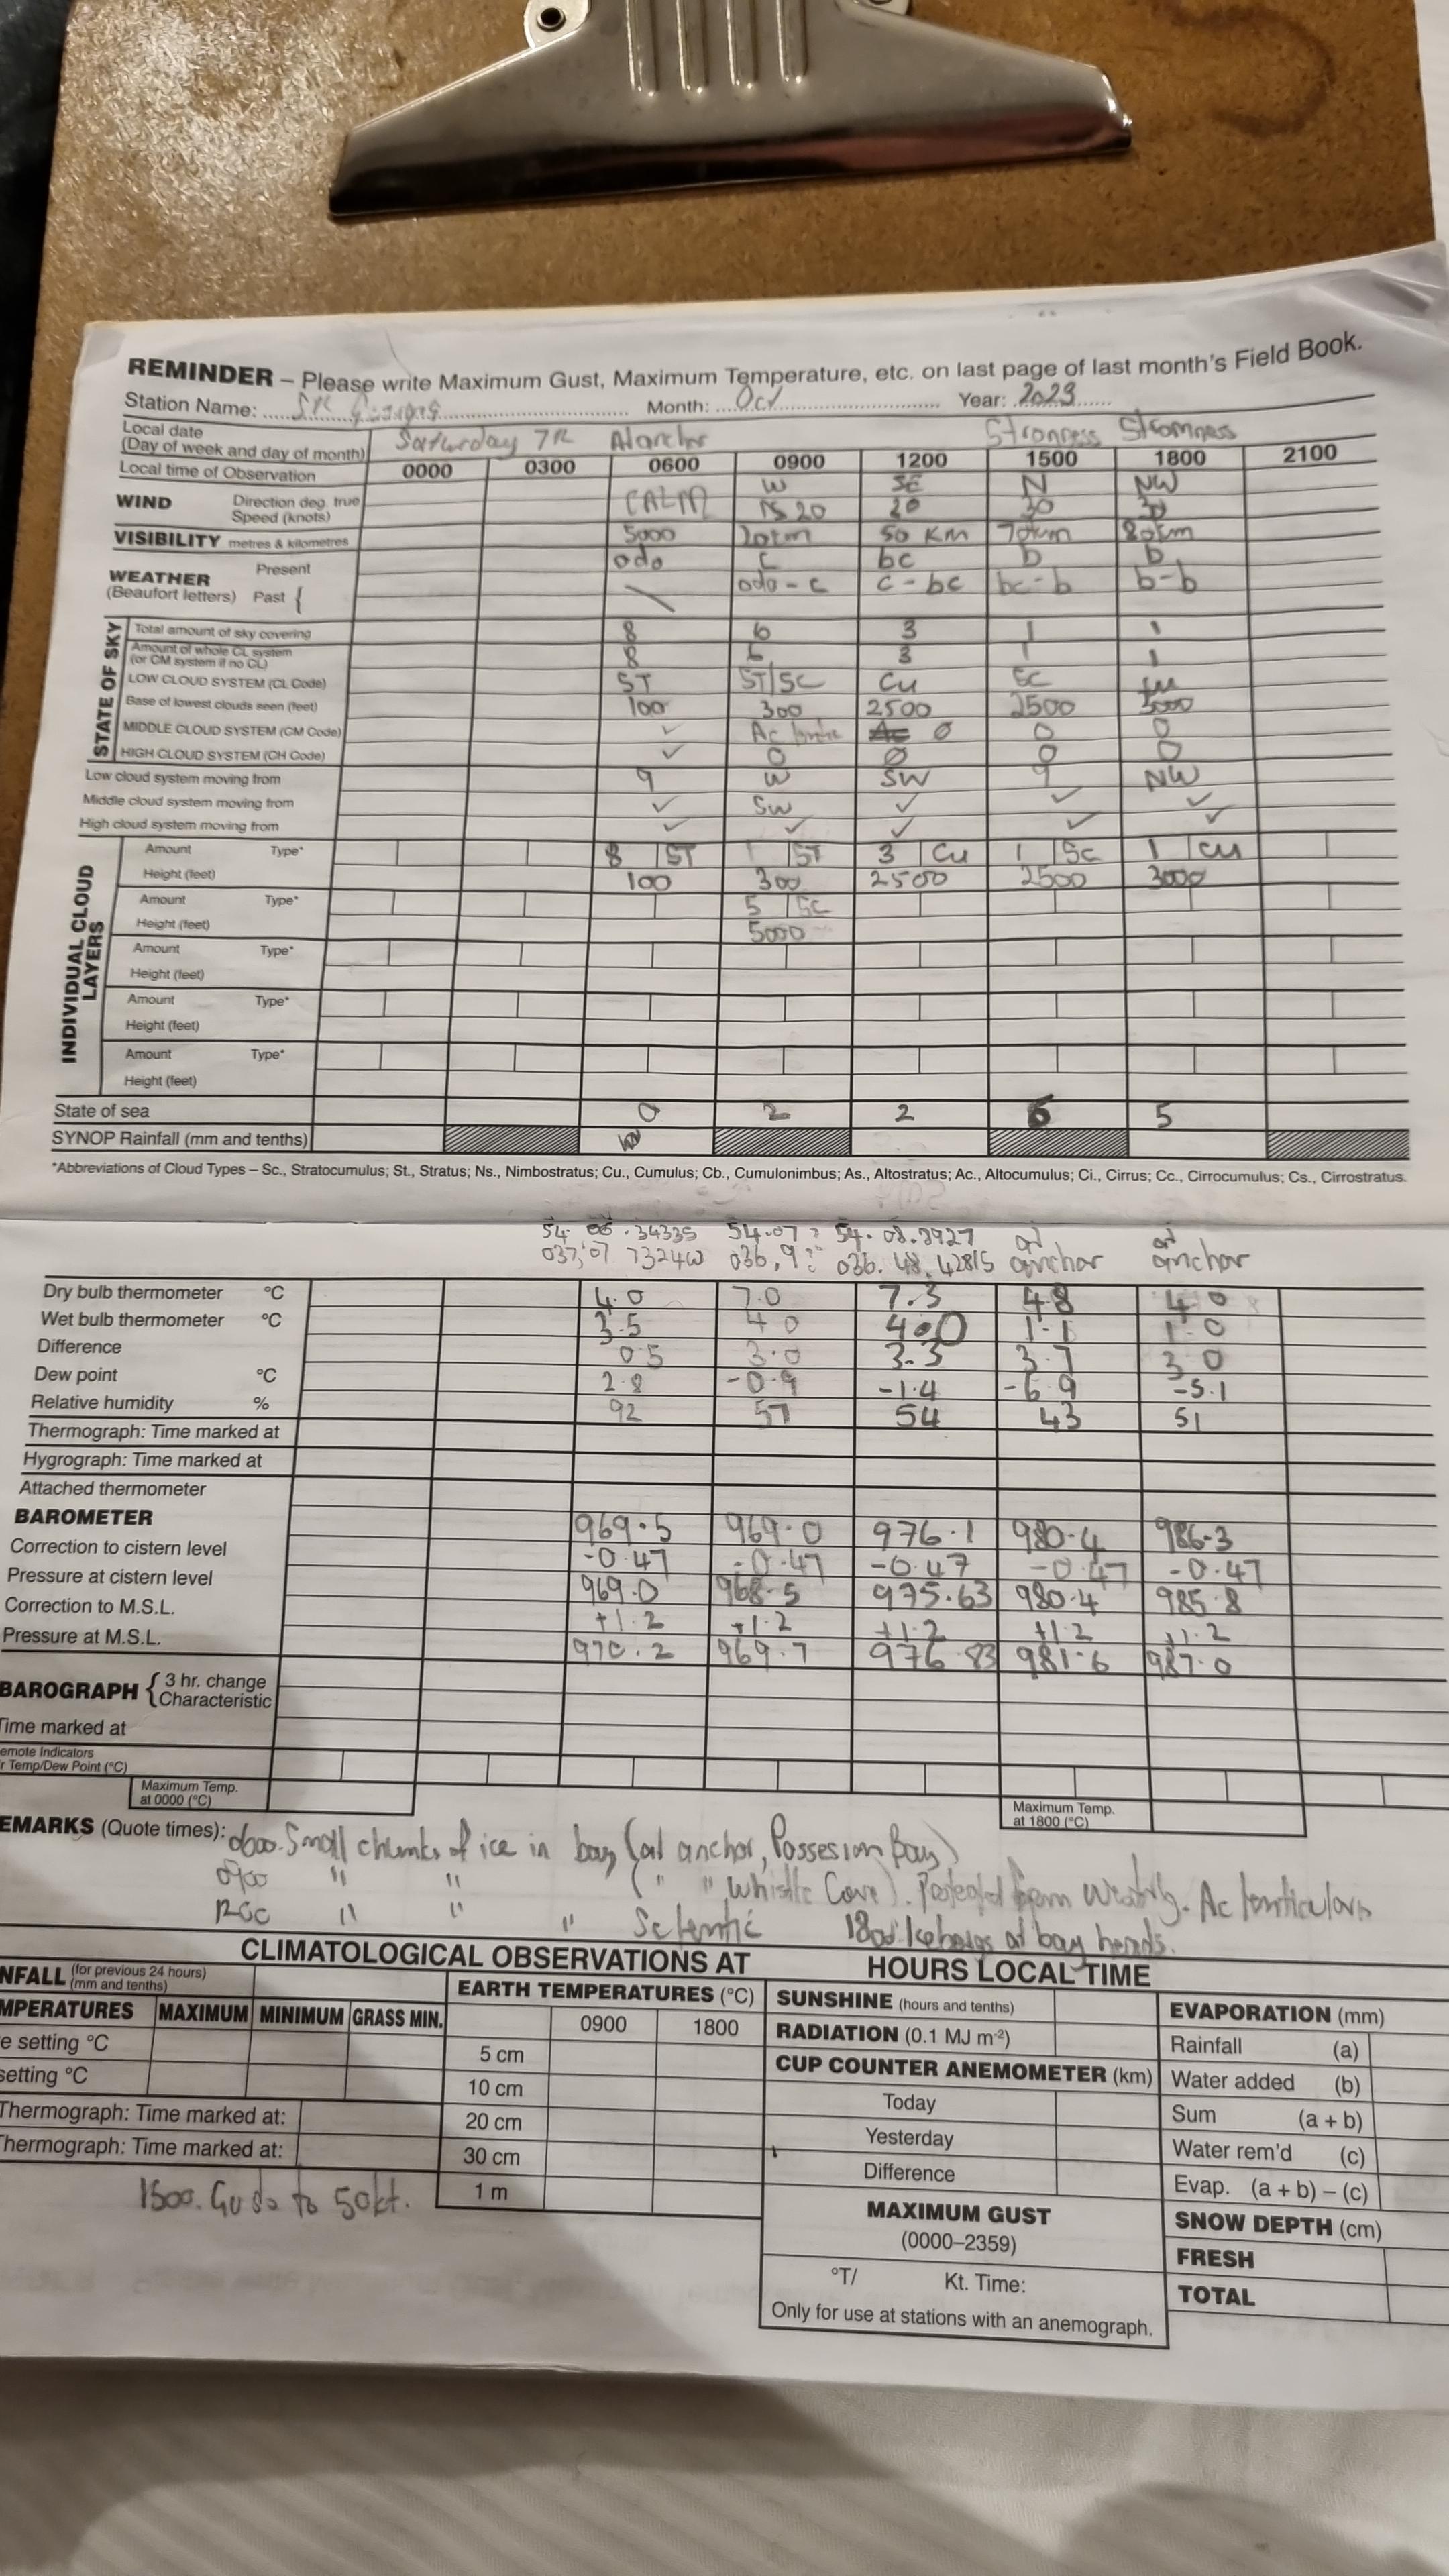 REMINDER – Please write Maximum Gust, Maximum Temperature, etc. on last page of last month's Field Book.
Station Name: Month: Oct Year: 2023
Local date (Day of week and day of month) Saturday 7th At anchor Stromness Stromness
Local time of Observation 0000 0300 0600 0900 1200 1500 1800 2100
WIND Direction deg. true CALM W SE N NW
Speed (knots) 15 20 20 30 30
VISIBILITY metres & kilometres 5000 20km 50 KM 70km 80km
WEATHER (Beaufort letters) Present odo c bc b b
Past { odo - c c - bc bc - b b - b
STATE OF SKY
Total amount of sky covering 8 6 3 1 1
Amount of whole CL system (or CM system if no CL) 8 6 3 1 1
LOW CLOUD SYSTEM (CL Code) ST ST/SC Cu SC Cu
Base of lowest clouds seen (feet) 100 300 2500 2500 3000
MIDDLE CLOUD SYSTEM (CM Code) ✓ Ac 0 0 0
HIGH CLOUD SYSTEM (CH Code) ✓ 0 0 0 0
Low cloud system moving from 9 W SW 9 NW
Middle cloud system moving from ✓ SW ✓ ✓ ✓
High cloud system moving from ✓ ✓ ✓ ✓ ✓
INDIVIDUAL CLOUD LAYERS
Amount Type* 8 ST 1 ST 3 Cu 1 Sc 1 Cu
Height (feet) 100 300 2500 2500 3000
Amount Type* 5 Sc
Height (feet) 5000
Amount Type*
Height (feet)
Amount Type*
Height (feet)
Amount Type*
Height (feet)
State of sea 0 2 2 6 5
SYNOP Rainfall (mm and tenths)
*Abbreviations of Cloud Types – Sc., Stratocumulus; St., Stratus; Ns., Nimbostratus; Cu., Cumulus; Cb., Cumulonimbus; As., Altostratus; Ac., Altocumulus; Ci., Cirrus; Cc., Cirrocumulus; Cs., Cirrostratus.
54. 06 .34335 54.07 54. 08.2927 at at
037,07 7324W 036,9 036. 48. 42815 anchor anchor
Dry bulb thermometer °C 4.0 7.0 7.3 4.8 4.0
Wet bulb thermometer °C 3.5 4.0 4.0 1.1 1.0
Difference 0.5 3.0 3.3 3.7 3.0
Dew point °C 2.8 -0.9 -1.4 -6.9 -5.1
Relative humidity % 92 57 54 43 51
Thermograph: Time marked at
Hygrograph: Time marked at
Attached thermometer
BAROMETER 969.5 969.0 976.1 980.4 986.3
Correction to cistern level -0.47 -0.47 -0.47 -0.47 -0.47
Pressure at cistern level 969.0 968.5 975.63 980.4 985.8
Correction to M.S.L. +1.2 +1.2 +1.2 +1.2 +1.2
Pressure at M.S.L. 970.2 969.7 976.83 981.6 987.0
BAROGRAPH { 3 hr. change
Characteristic
Time marked at
emote Indicators
r Temp/Dew Point (°C)
Maximum Temp. at 0000 (°C)
Maximum Temp. at 1800 (°C)
EMARKS (Quote times): 0600. Small chunks of ice in bay (at anchor, Possesion Bay)
0900 " " (" ", Whistle Cove). Protected from Westerly. Ac lenticularis
1200 " " " 1800 Icebergs at bay heads.
CLIMATOLOGICAL OBSERVATIONS AT HOURS LOCAL TIME
NFALL (for previous 24 hours) (mm and tenths)
MPERATURES MAXIMUM MINIMUM GRASS MIN.
e setting °C
setting °C
Thermograph: Time marked at:
Thermograph: Time marked at:
1500. Gusts to 50kt.
EARTH TEMPERATURES (°C)
0900 1800
5 cm
10 cm
20 cm
30 cm
1 m
SUNSHINE (hours and tenths)
RADIATION (0.1 MJ m-2)
CUP COUNTER ANEMOMETER (km)
Today
Yesterday
Difference
MAXIMUM GUST
(0000–2359)
°T/ Kt. Time:
Only for use at stations with an anemograph.
EVAPORATION (mm)
Rainfall (a)
Water added (b)
Sum (a + b)
Water rem'd (c)
Evap. (a + b) – (c)
SNOW DEPTH (cm)
FRESH
TOTAL